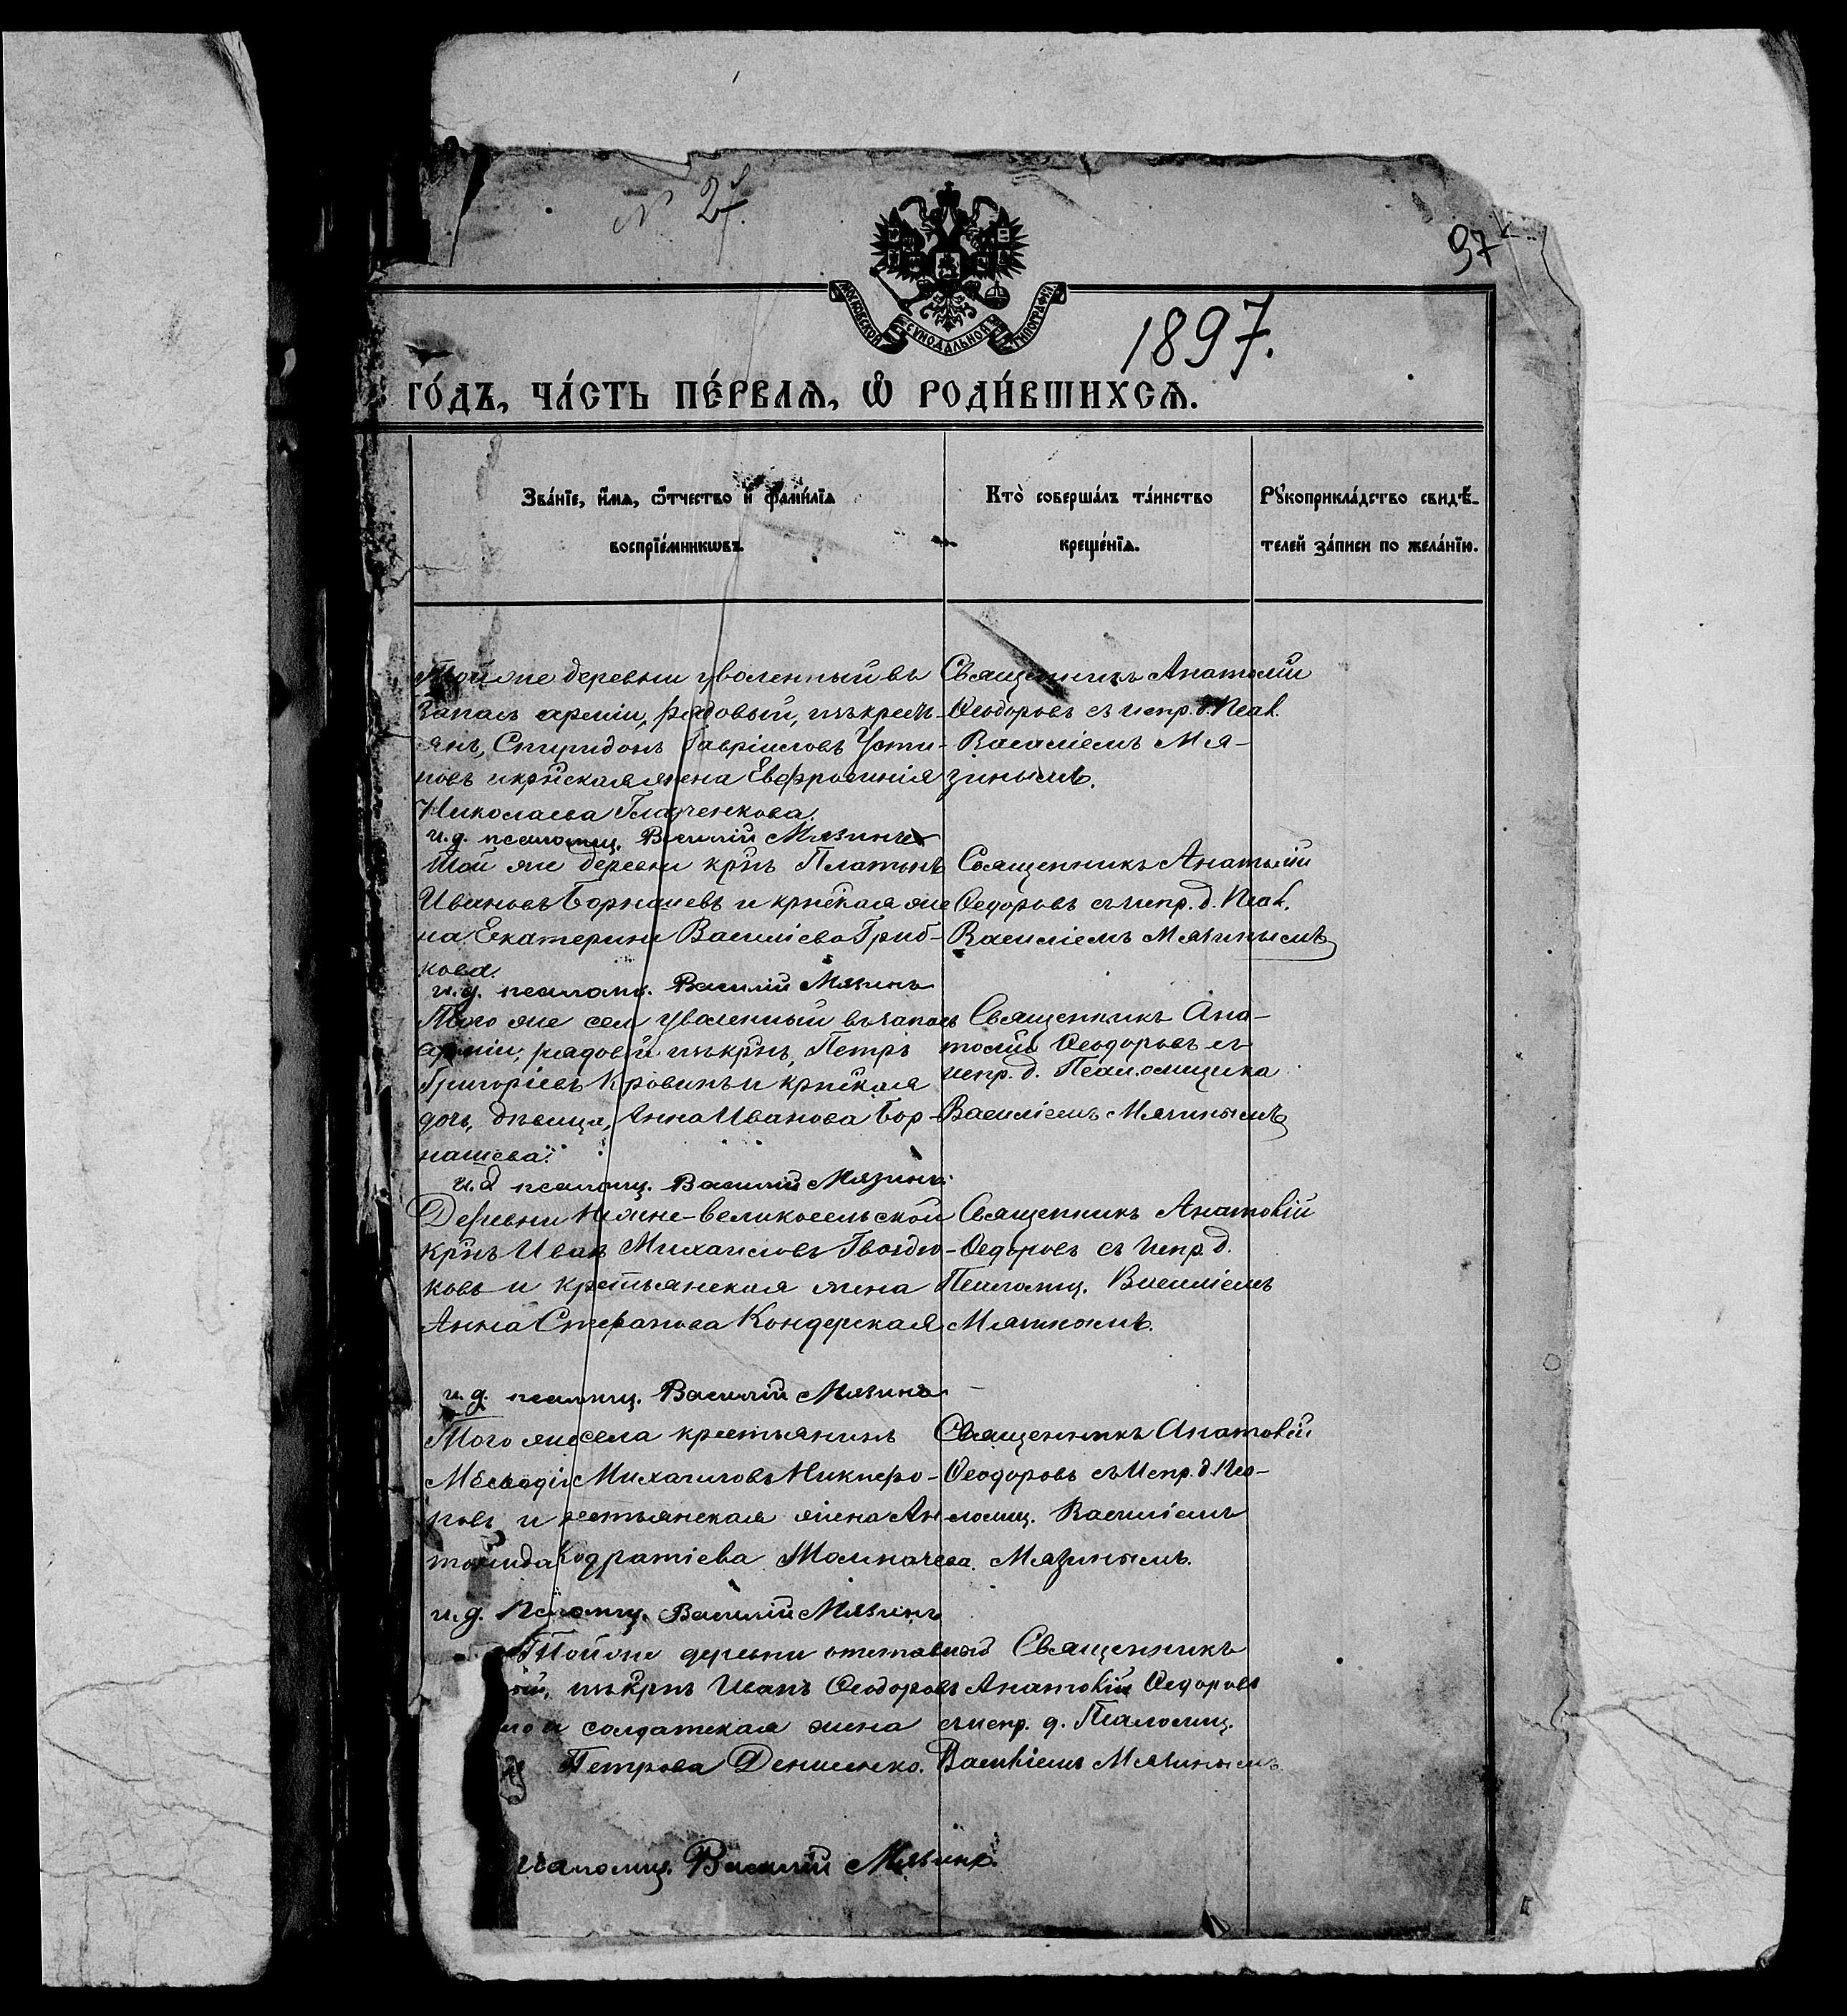 № 27.
97
МОСКОВСКОЙ СУНОДАЛЬНОЙ ТИПОГРАФІИ
1897.
ГО́ДЪ, ЧА́СТЬ ПЕ́РВАѦ, Ѡ҆ РОДИ́ВШИХСѦ.
Зва́нїе, и҆́мѧ, ѻ҆́тчество и҆ фами́лїа
воспрїе́мникѡвъ.
Кто̀ соверша́лъ та́инство
креще́нїѧ.
Рꙋкоприкла́дство свидѣ́-
телей за́писи по жела́нїю.
Той же деревни уволенный въ
запасъ арміи, рядовый, изъ крест-
янъ, Спиридонъ Гавріиловъ Усти-
новъ и крнская жена Евфросинія
Николаева
и.д. псаломщ. Василій Мязинъ
Священникъ Анатолій
Ѳеодоровъ съ испр. д. Псал.
Василіемъ Мя-
зинымъ.
Той же деревни крнъ Платонъ
Ивановъ Борнашевъ и крнская же-
на Екатерина Василіева Гриб-
кова.
и.д. псаломщ. Василій Мязинъ
Священникъ Анатолій
Ѳедоровъ съ испр. д. Псал.
Василіемъ Мязинымъ
Того же села уволенный въ запасъ
арміи, рядовый изъ крнъ, Петръ
Григоріевъ Кровинъ и крнская
дочь, дѣвица, Анна Иванова Бор-
нашева.
и.д. псаломщ. Василій Мязинъ.
Священникъ Ана-
толій Ѳеодоровъ съ
испр. д. Псаломщика
Василіемъ Мязинымъ
Деревни Нижне-великосельской
крнъ Иванъ Михаиловъ Гвоздю-
ковъ и крестьянская жена
Анна Стефанова Кондерская
и.д. псаломщ. Василій Мязинъ.
Священникъ Анатолій
Ѳедоровъ съ испр. д.
Псаломщ. Василіемъ
Мязинымъ.
Того же села крестьянинъ
Меѳодій Михаиловъ Никифо-
ровъ и крестьянская жена Ан-
тонида Кодратіева
и.д. Псаломщ. Василій Мязинъ
Священникъ Анатолій
Ѳеодоровъ съ Испр. д. Пса-
ломщ. Василіемъ
Мязинымъ.
Той же деревни отставной
изъ крнъ Иванъ Ѳеодоровъ
солдатская жена
Петрова Денисенко.
псаломщ. Василій Мязинъ.
Священникъ
Анатолій Ѳедоровъ
съ испр. д. Псаломщ.
Василіемъ Мязинымъ